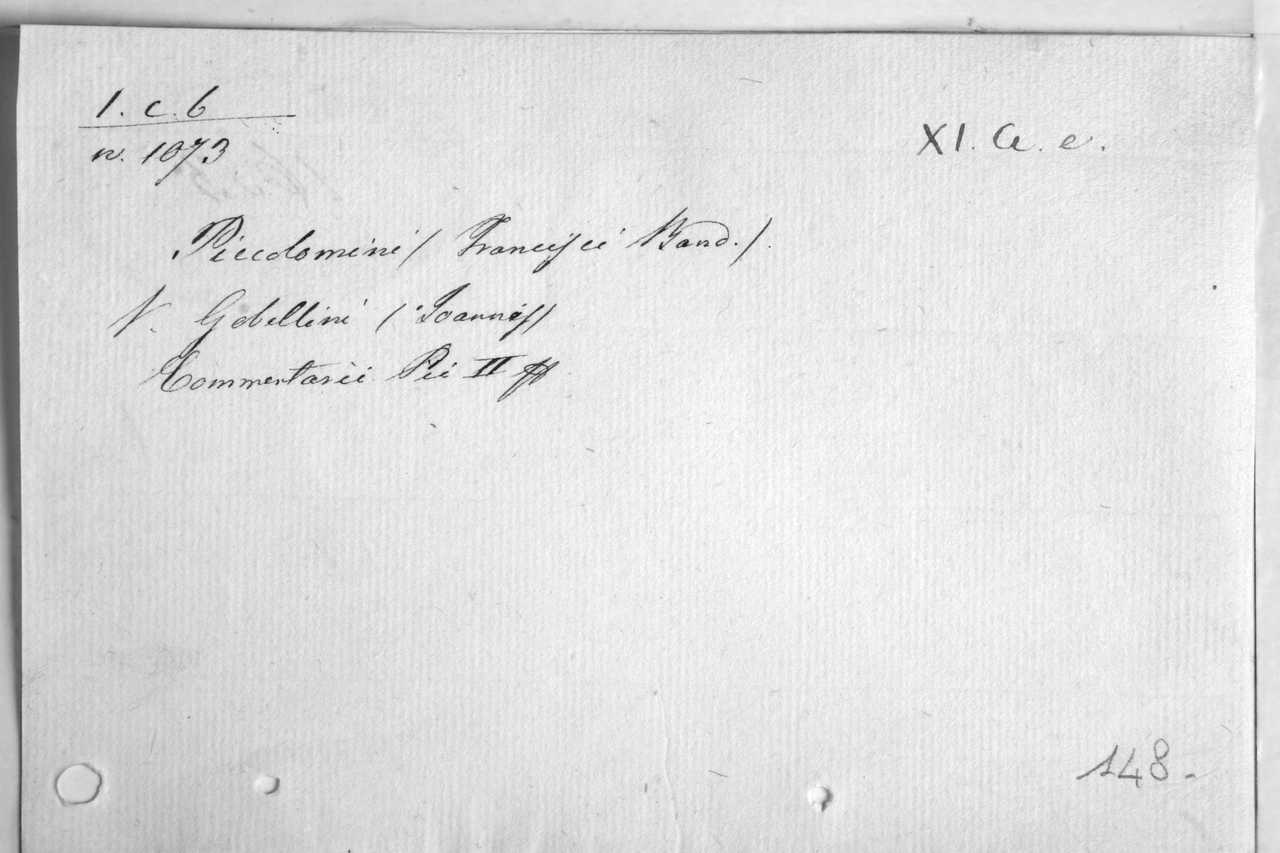 1. c. 6
n. 1073
XI. a. e.
Piccolomini (Francisci Band.).
V. Gobellini (Joannis)
Commentarii Pii II
148.